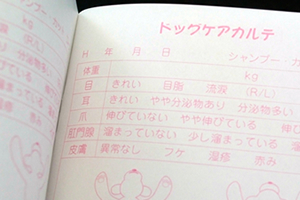 ドッグケアカルテ
H 年 月 日 シャンプー・カ
体重 kg
目 きれい 目脂 流涙 (R/L)
耳 きれい やや分泌物あり 分泌物多い
爪 伸びていない やや伸びている 伸び
肛門腺 溜まっていない 少し溜まっている 溜
皮膚 異常なし フケ 湿疹 赤み